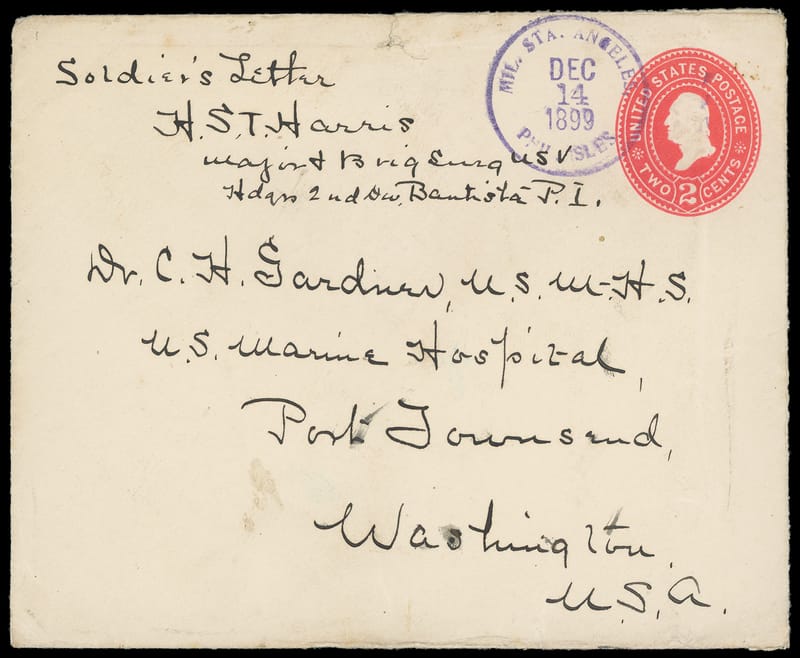 Soldier's Letter
H.S.T. Harris
Major & Brig Surg U S V
Hdqrs 2nd Div, Bautista P.I.
MIL. STA. ANGELES
DEC
14
1899
PHIL. ISLES
UNITED STATES POSTAGE
TWO 2 CENTS
Dr. C. H. Gardner, U.S. M-H.S.
U.S. Marine Hospital,
Port Townsend,
Washington,
U.S.A.